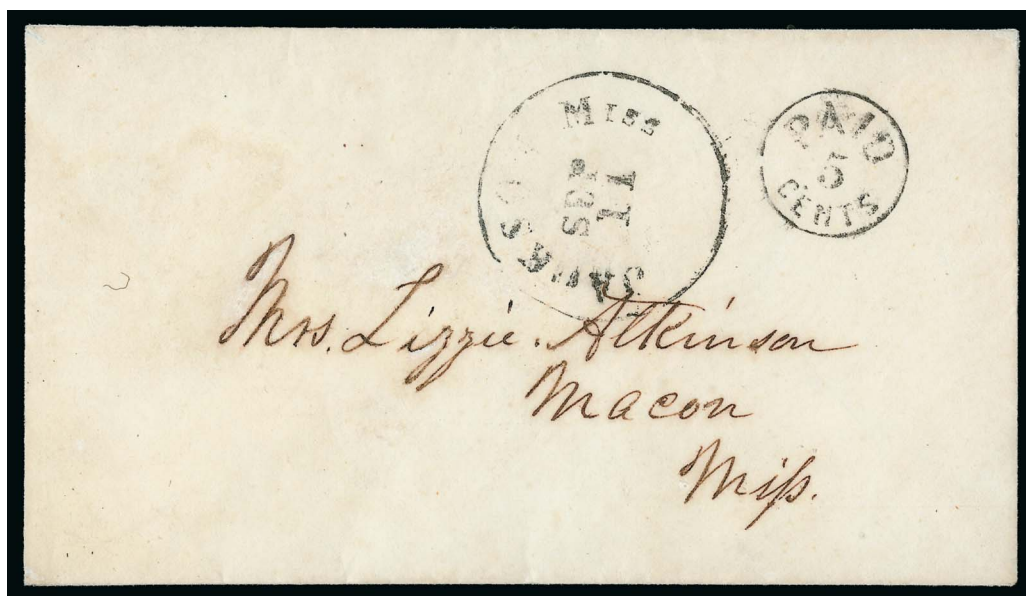 JACKSON MISS
SEP
11
PAID
5
CENTS
Mrs. Lizzie Atkinson
Macon
Miſs.